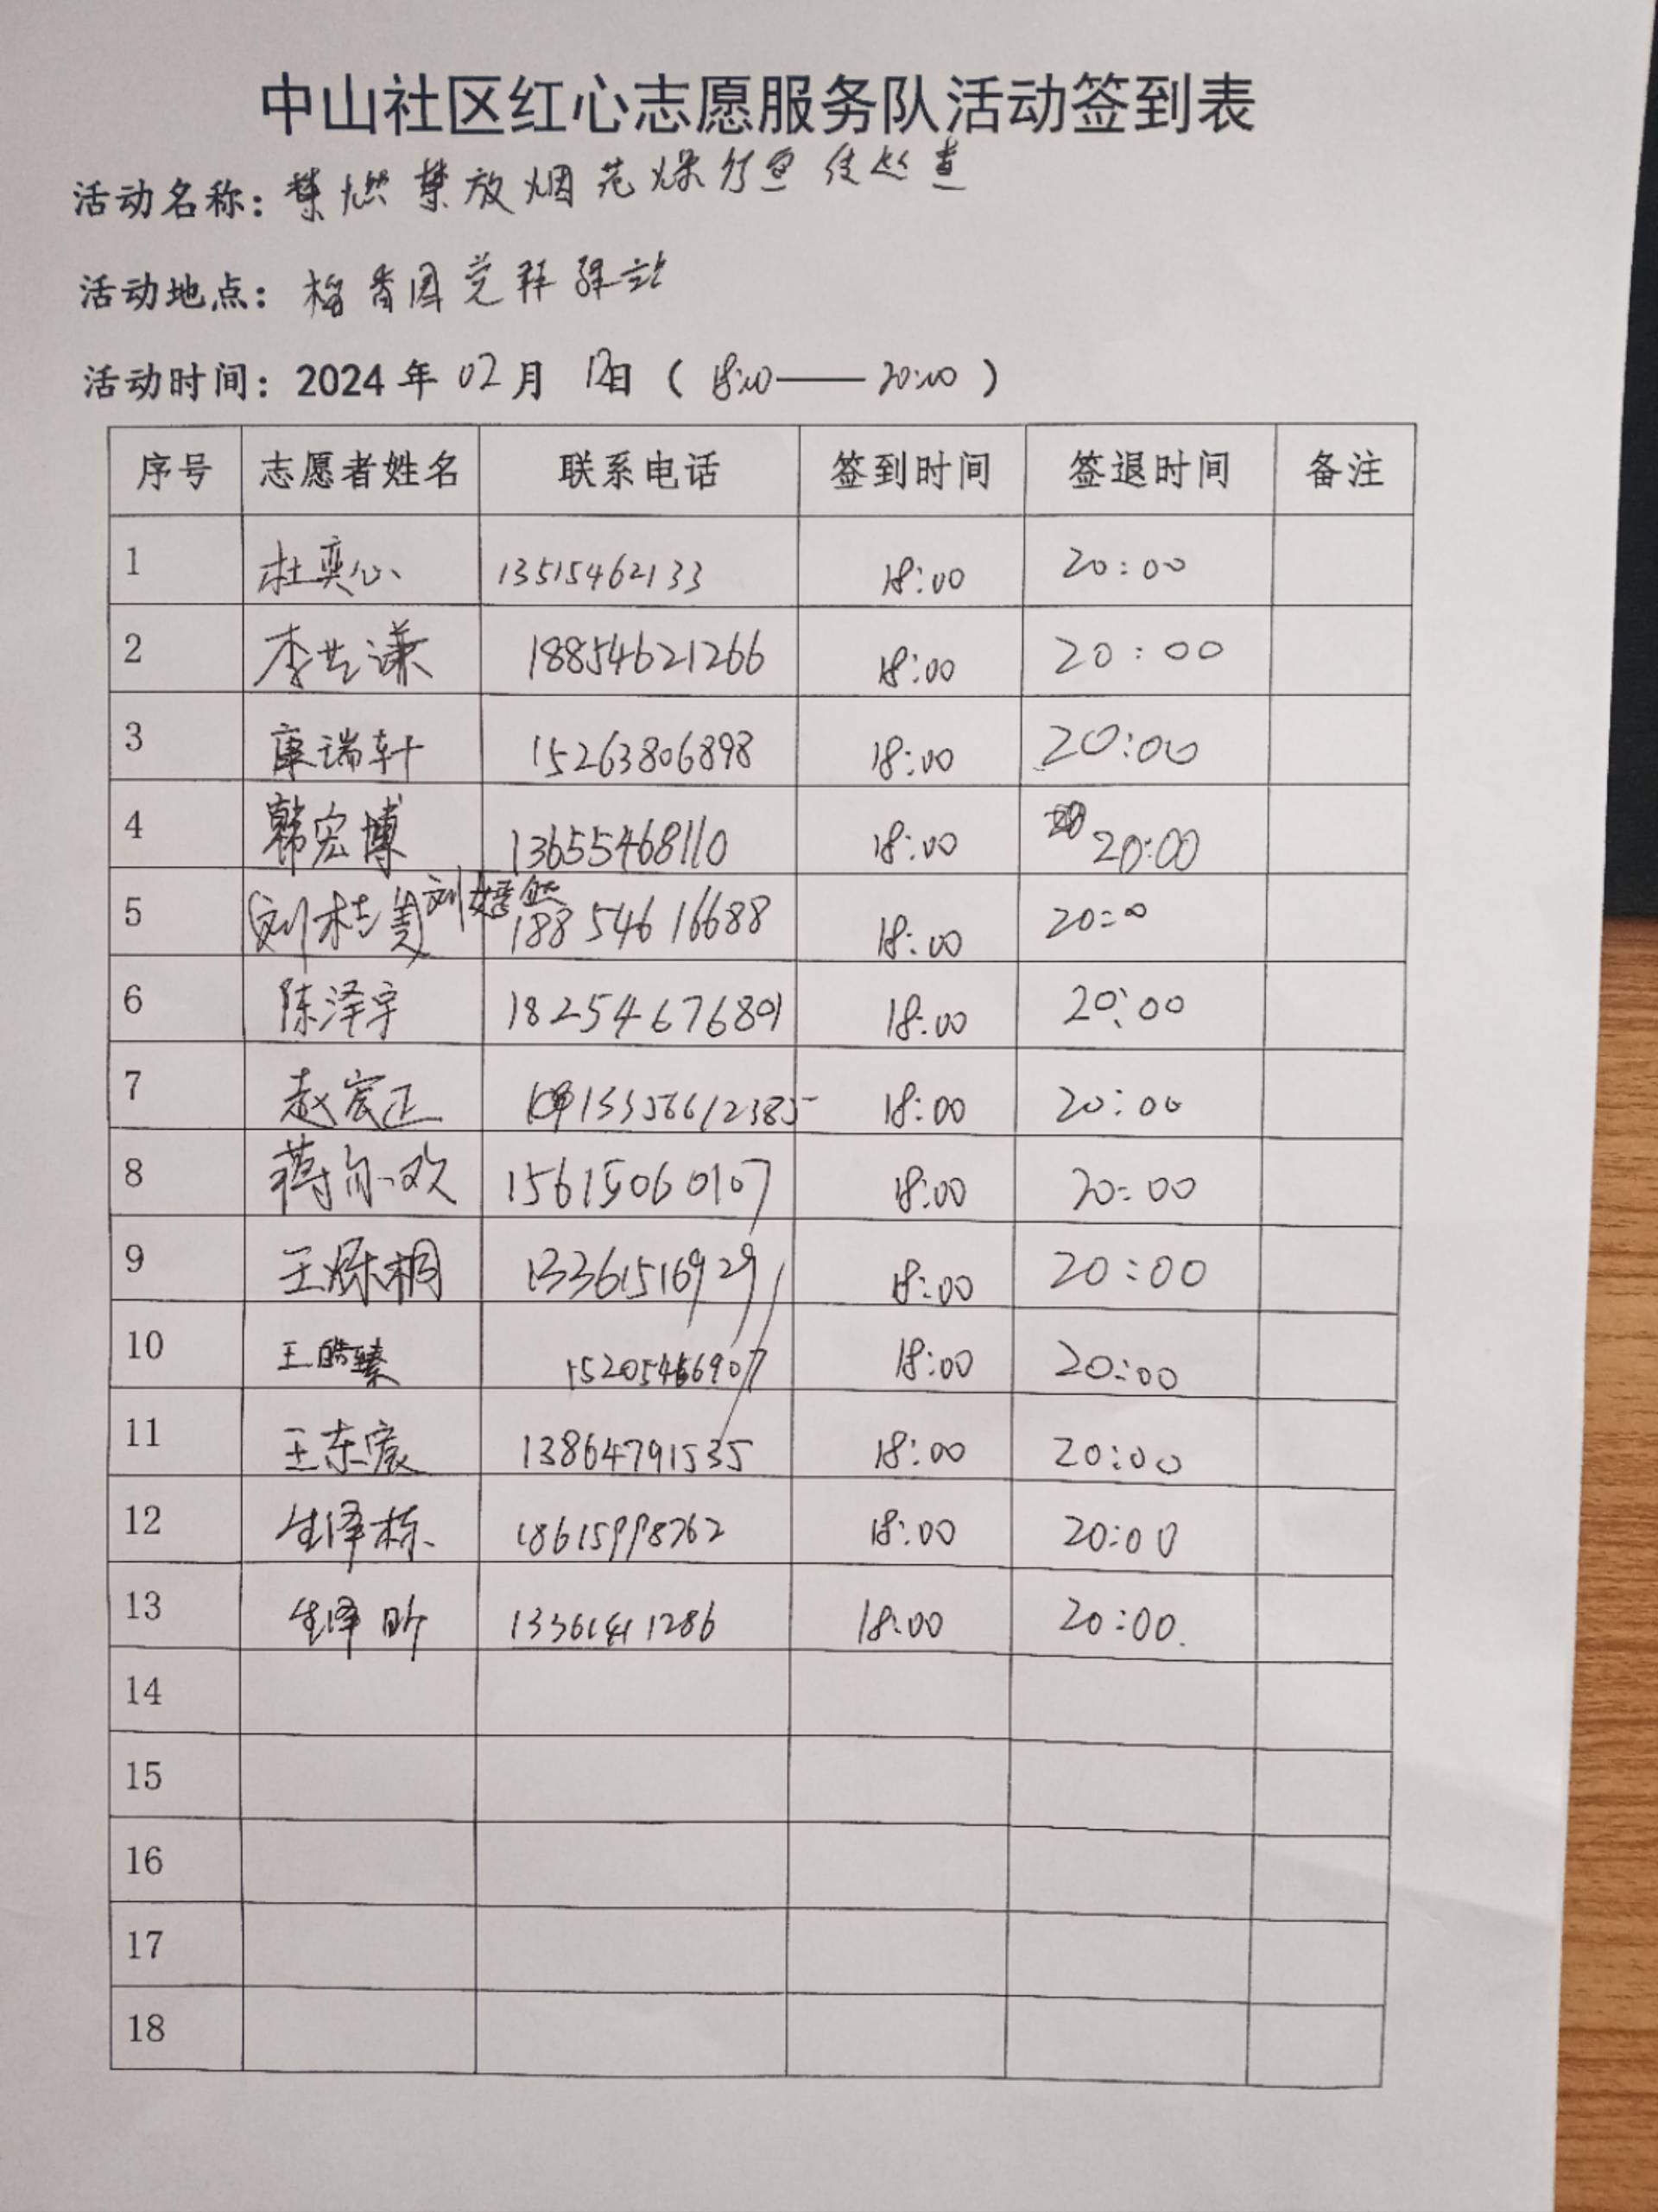 中山社区红心志愿服务队活动签到表
活动名称：禁燃禁放烟花爆竹宣传巡查
活动地点：梅香园党群驿站
活动时间：2024年02月12日（18:00——20:00）
序号 志愿者姓名 联系电话 签到时间 签退时间 备注
1 杜奕心 13515462133 18:00 20:00
2 李世谦 18854621266 18:00 20:00
3 康瑞轩 15263806898 18:00 20:00
4 韩宏博 13655468110 18:00 20:00
5 刘桂 刘嫱然 18854616688 18:00 20:00
6 陈泽宇 18254676801 18:00 20:00
7 赵宸正 13356612385 18:00 20:00
8 蒋尔欢 15615060107 18:00 20:00
9 王烁桐 13361516929 18:00 20:00
10 王皓臻 15205466907 18:00 20:00
11 王东宸 13864791535 18:00 20:00
12 生泽栋 18615998262 18:00 20:00
13 生泽昕 13361411286 18:00 20:00.
14
15
16
17
18